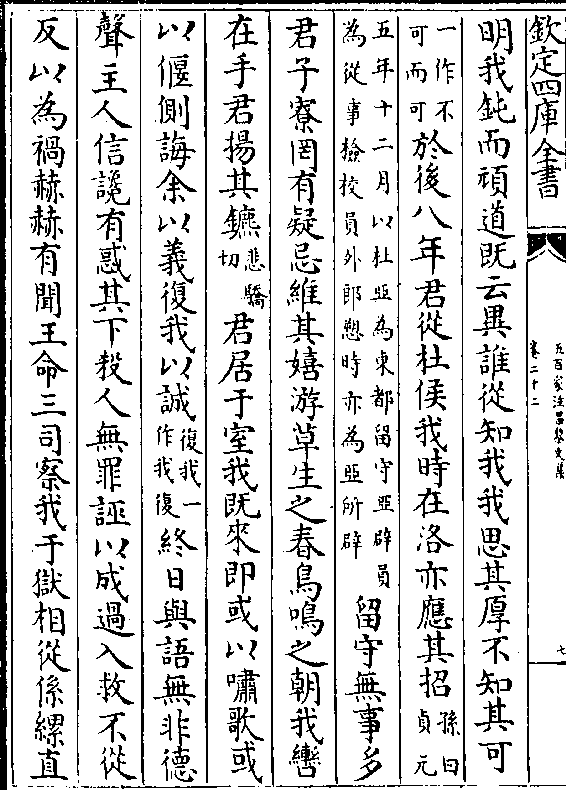 欽定四庫全書
五百家注昌黎文集
卷二十二
七
明我鈍而頑道既云異誰從知我我思其厚不知其可
一作不
可而可
於後八年君從杜侯我時在洛亦應其招
孫曰
貞元
五年十二月以杜亞為東都留守亞辟員
為從事檢校員外郎愬時亦為亞所辟
留守無事多
君子寮罔有疑忌維其嬉游草生之春鳥鳴之朝我轡
在手君揚其鑣
悲驕
切
君居于室我既來即或以嘯歌或
以偃側誨余以義復我以誠
復我一
作我復
終日與語無非德
聲主人信讒有惑其下殺人無罪誣以成過入救不從
反以為禍赫赫有聞王命三司察我于獄相從係縲直